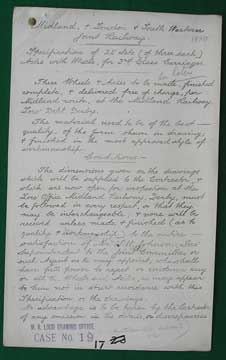 Midland, & London & South Western
Joint Railway.
Specification of 25 sets (of three each)
Axles with Wheels, for 3rd Class Carriages
These Wheels & Axles to be made, finished
complete, & delivered free of charge, per
Midland route, at the Midland Railway
Loco' Dept Derby.
The material used to be of the best
quality, of the form shewn in drawing,
& finished in the most approved style of
workmanship.
Conditions
The dimensions given on the drawings
which will be supplied to the Contractor, &
which are now open for inspection at the
Loco Office Midland Railway, Derby, must
be followed in every respect, so that they
may be interchangeable, & none will be
received unless made & finished (as to
quality & workmanship) to the entire
satisfaction of Mr S. W. Johnson, Loco
Superintendent to the Joint Committee or
such Agent as he may appoint, who shall
have full power to reject
or all the Wheels and Axles as may appear
to him not in strict accordance with this
Specification or the drawings.
No advantage is to be taken by the Contractor
of any omission in the details, or discrepancies
M. R. LOCO DRAWING OFFICE
CASE No. 19
17